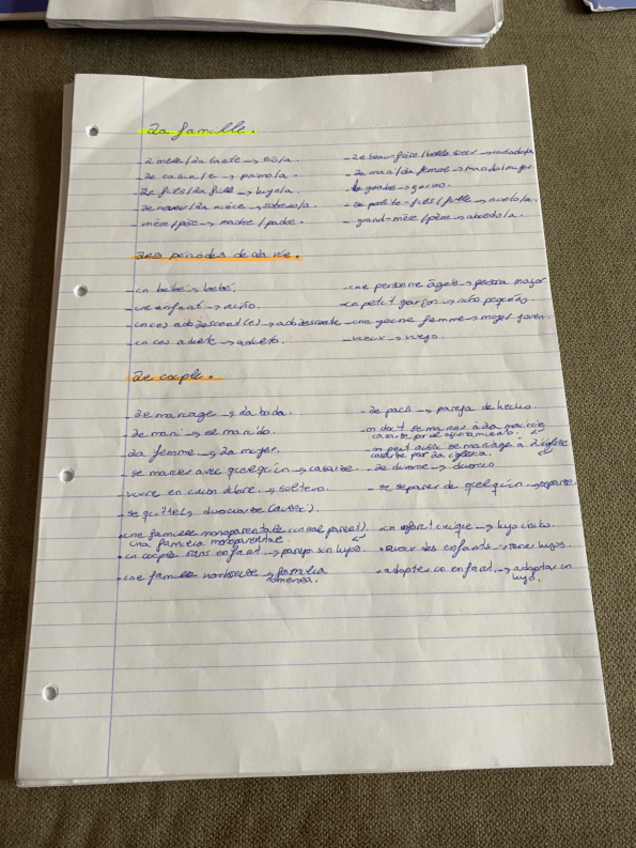 La famille.
- L'oncle/la tante → tío/a.
- Le cousin/e → primo/a.
- Le fils/la fille → hijo/a.
- Le neveu/la nièce → sobrino/a.
- mère/père → madre/padre.
- Le beau-frère/belle soeur → cuñado/a
- Le mari/la femme → marido/mujer
- Le gendre → yerno.
- Le petite-fils/fille → nieto/a.
- grand-mère/père → abuelo/a.
Les périodes de la vie.
- un bébé → bebé.
- un enfant → niño.
- un(e) adolescent(e) → adolescente
- un(e) adulte → adulto.
- une personne âgée → persona mayor
- un petit garçon → niño pequeño.
- une jeune femme → mujer joven.
- vieux → viejo.
Le couple.
- Le mariage → la boda.
- Le mari → el marido.
- La femme → la mujer.
- se marier avec quelqu'un → casarse.
- vivre en union libre → soltero.
- se quitter → divorciarse
- Le pacs → pareja de hecho
- on doit se marier à la mairie
casarse por el ayuntamiento.
- on peut aussi se mariage à l'église
casarse por la iglesia.
- Le divorce → divorcio
- se séparer de quelqu'un →
• une famille monoparentale (un seul parent).
una familia monoparental.
• un couple sans enfant → pareja sin hijos.
• une famille nombreuse → familia
numerosa.
• un enfant unique → hijo único.
• avoir des enfants → tener hijos.
• adopter un enfant. → adoptar un
hijo.